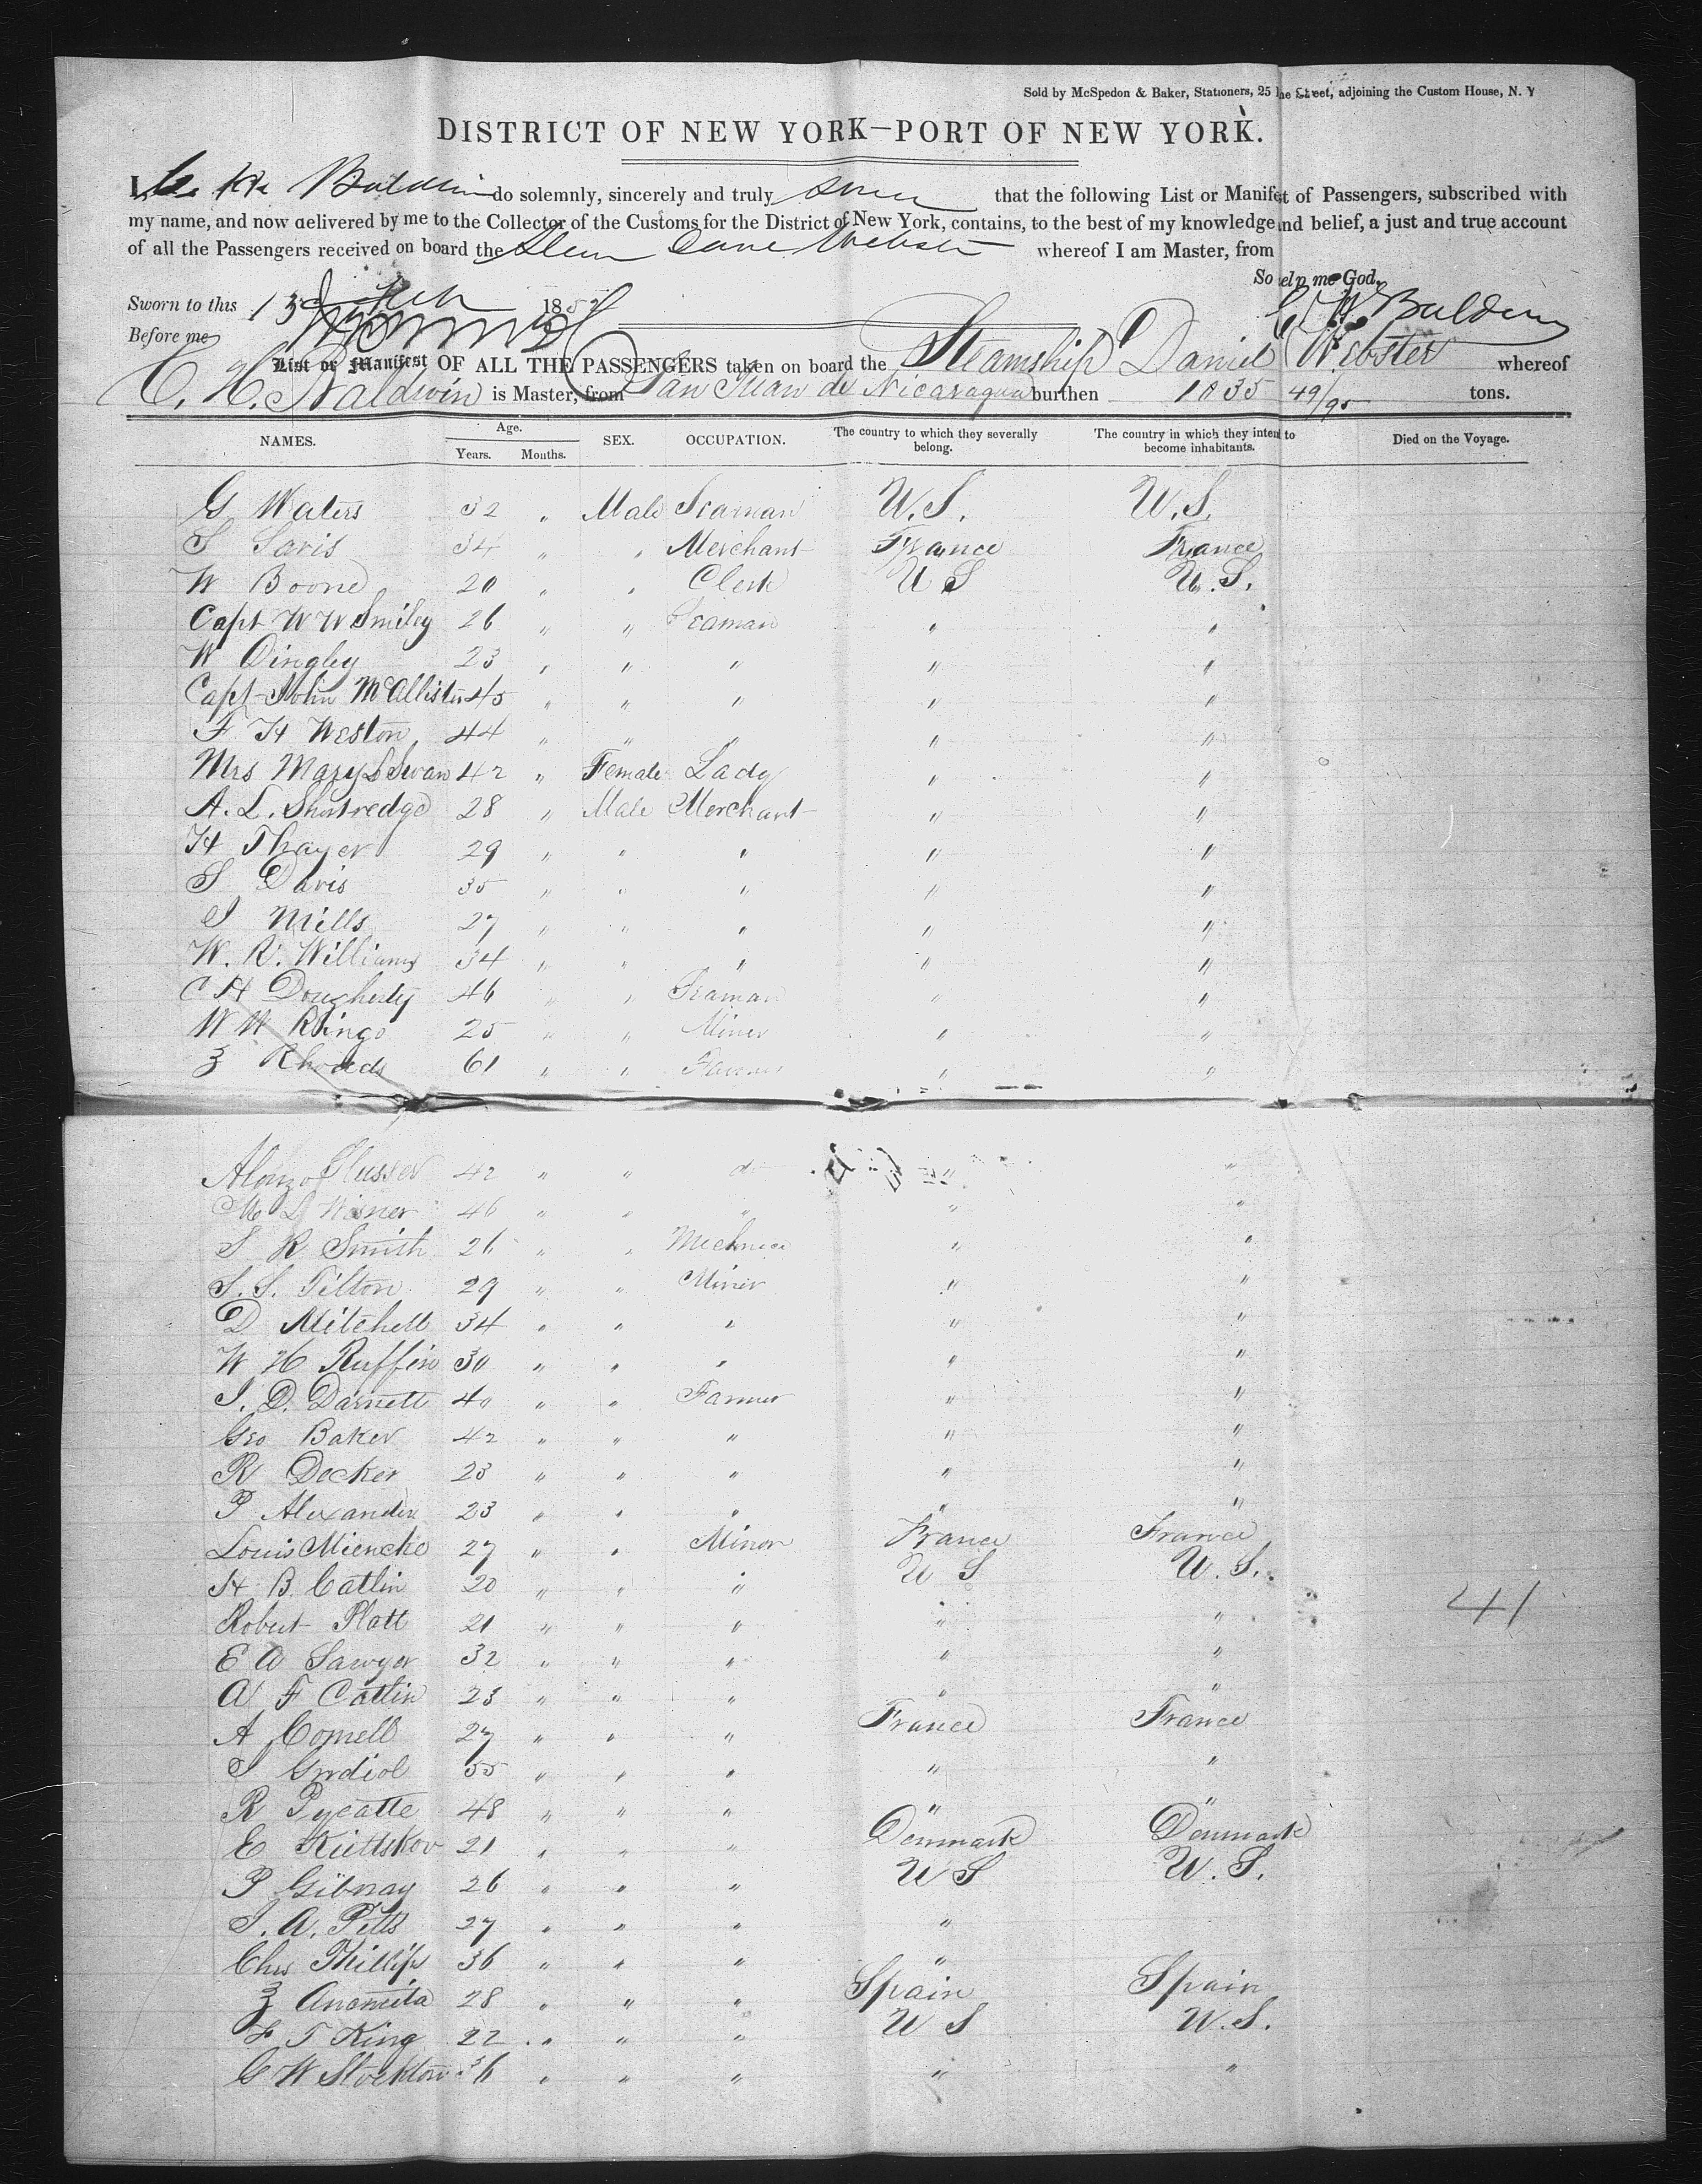 Sold by McSpedon & Baker, Stationers, 25 Street, adjoining the Custom House, N. Y
DISTRICT OF NEW YORK—PORT OF NEW YORK.
I, C. H. Baldwin do solemnly, sincerely and truly swear that the following List or Manifest of Passengers, subscribed with
my name, and now delivered by me to the Collector of the Customs for the District of New York, contains, to the best of my knowledge and belief, a just and true account
of all the Passengers received on board the Steamer Daniel Webster whereof I am Master, from
So help me God.
Sworn to this 13 185 C H Baldwin
Before me
List or Manifest OF ALL THE PASSENGERS taken on board the Steamship Daniel Webster whereof
C. H. Baldwin is Master, from San Juan de Nicaragua burthen 1035 49/95 tons.
NAMES. Age. Years. Months. SEX. OCCUPATION. The country to which they severally belong. The country in which they intend to become inhabitants. Died on the Voyage.
G Waters 32 " Male Seaman U.S. U.S.
S Saris 34 " " Merchant France France
W Boone 20 " " Clerk U S U.S.
Capt W W Smiley 26 " " Seaman " "
W Dingley 23 " " " " "
Capt John McAllister 45 " " " " "
F H Weston 44 " " " " "
Mrs Mary S Swan 42 " Female Lady " "
A. L. Shortredge 28 " Male Merchant " "
H Thayer 29 " " " " "
S Davis 35 " " " " "
J Mills 27 " " " " "
W. R. Williams 34 " " " " "
C H Dougherty 46 " " Seaman " "
W W Ringo 25 " " Miner " "
Z Rhoads 61 " " Farmer " "
Alonzo Glusser 42 " " do " "
M L Wisner 46 " " " " "
S R Smith 26 " " Mechnic " "
S. S. Tilton 29 " " Miner " "
D Mitchell 34 " " " " "
W H Ruffin 30 " " " " "
J. D. Darnell 40 " " Farmer " "
Geo Baker 42 " " " " "
R Decker 23 " " " " "
P Alexander 23 " " " " "
Louis Miencke 27 " " Minor France France
H B Catlin 20 " " " U S U.S.
Robert Platt 21 " " " " "
41
E A Sawyer 32 " " " " "
A F Catlin 23 " " " " "
A Cornell 27 " " " France France
J Gordiol 55 " " " " "
R Pycatte 48 " " " " "
E Kuttskov 21 " " " Denmark Denmark
P Gibnay 26 " " " U S U.S.
J. A. Pitts 27 " " " "
Chs Phillips 36 " " " "
Z Anameita 28 " " " Spain Spain
F T King 22 " " " U S U.S.
G W Stockton 36 " " " " "